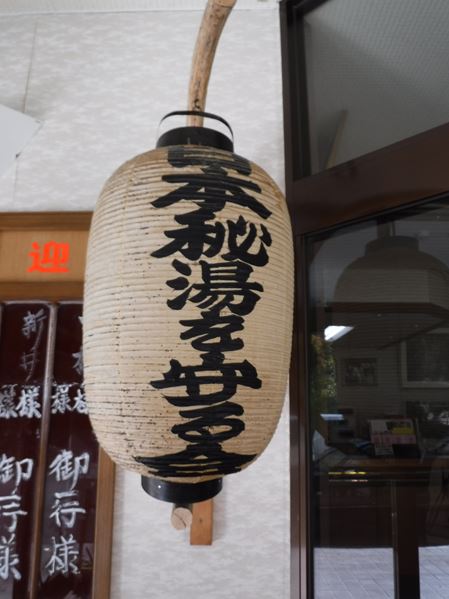 日本秘湯を守る会
迎
新井様
様
様
御一行様
御一行様